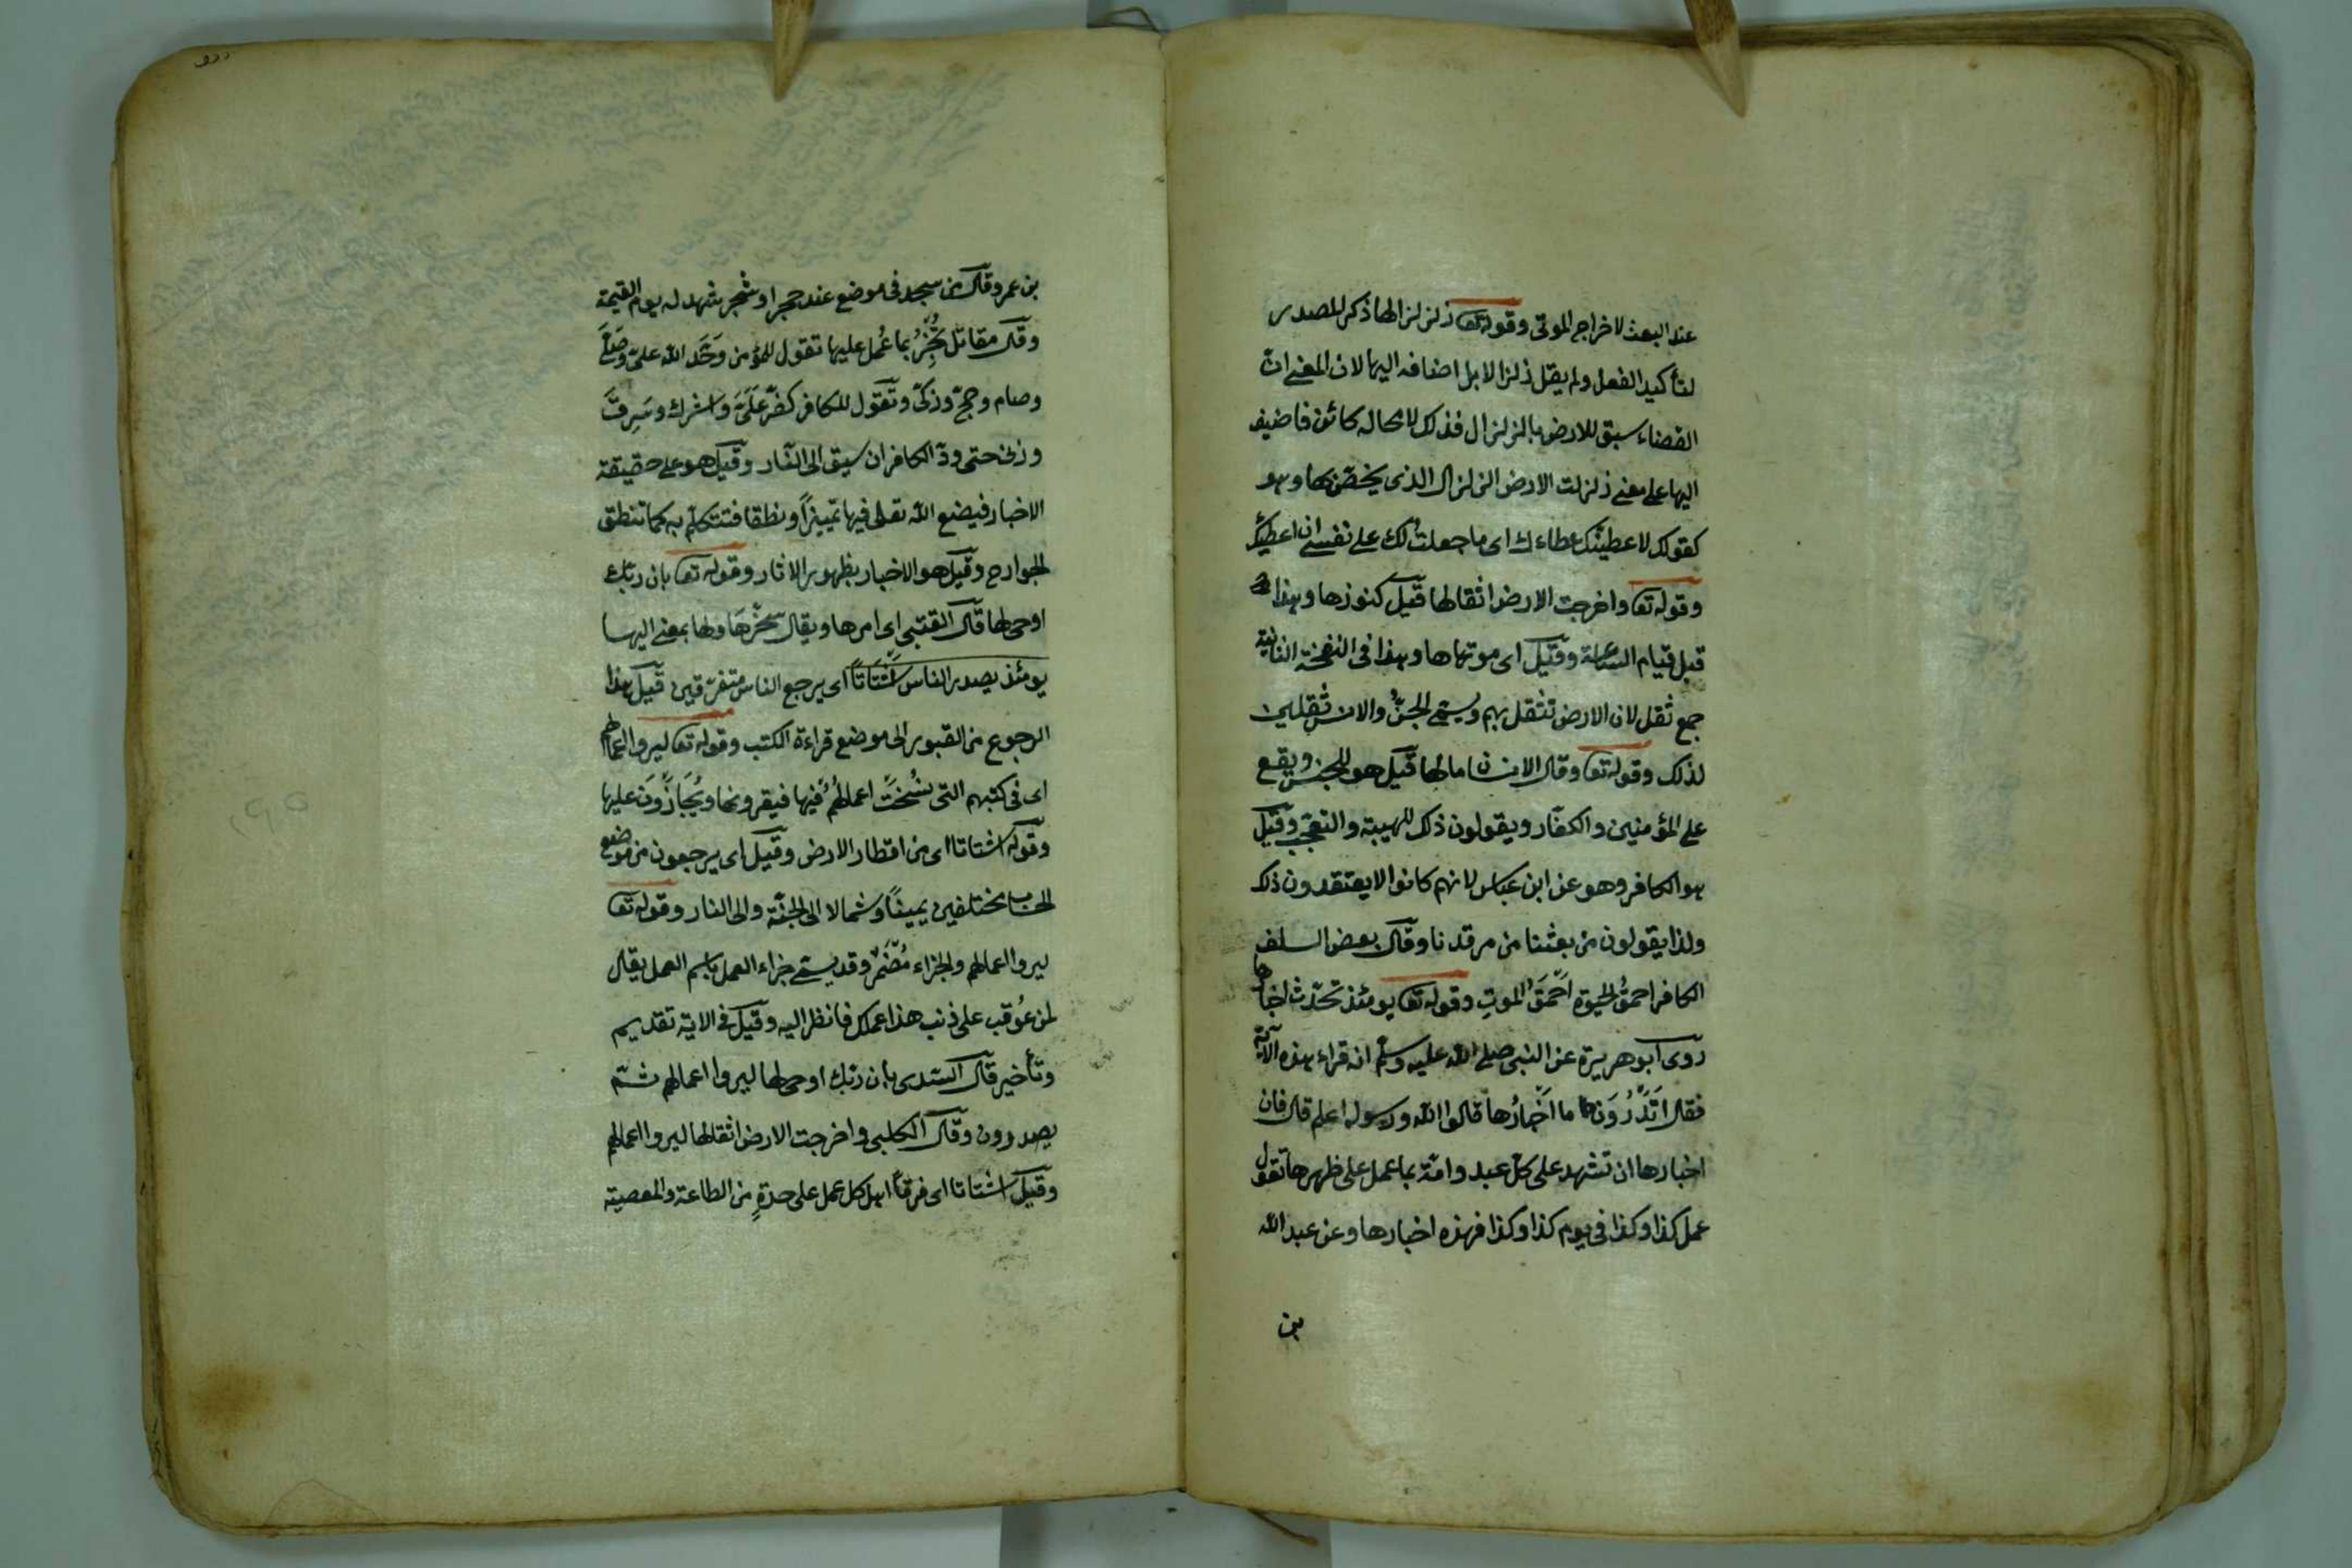 عند البعث لاخراج الموتى وقوله تعا زلزالها ذكر المصدر
لتأكيد الفعل ولم يقل زلزالا بل اضافه اليها لان المعنى ان
القضاء سبق للارض بالزلزال فذلك لا محالة كائن فاضيف
اليها على معنى زلزلت الارض الزلزال الذى يختص بها وهو
كقولك لاعطينّك عطاءك اى ما جعلت لك على نفسى ان اعطيك
وقوله تعا واخرجت الارض اثقالها قيل كنوزها وهذا
قبل قيام الساعة وقيل اى موتاها وهذا فى النفخة الثانية
جمع ثقل لان الارض تثقل بهم ويسمى الجنّ والانس ثقلين
لذلك وقوله تعا وقال الانسان ما لها قيل هو للجنس ويقع
على المؤمنين والكفّار ويقولون ذلك للهيبة والتعجّب وقيل
هو الكافر وهو عن ابن عباس لانهم كانوا لا يعتقدون ذلك
ولذا يقولون من بعثنا من مرقدنا وقال بعض السلف
الكافر احمق الحيوة احمق الموت وقوله تعا يومئذ تحدّث اخبارها
روى ابو هريرة عن النبى صلى الله عليه وسلم انه قراء هذه الآية
فقال اتدرون ما اخبارها قالوا الله ورسوله اعلم قال فان
اخبارها ان تشهد على كلّ عبد وامة بما عمل على ظهرها تقول
عمل كذا وكذا فى يوم كذا وكذا فهذه اخبارها وعن عبد الله
بن
بن عمرو قال من سجد فى موضع عند حجر او شجر شهد له يوم القيمة
وقال مقاتل تُخبِرُ بما عُمل عليها تقول للمؤمن وَحَّد الله علىّ وصَلّى
وصام وحجّ وزكّى وتقول للكافر كفر عَلَىّ واشرك وسَرق
وزنى حتى ودّ الكافر ان سيق الى النّار وقيل هو على حقيقة
الاخبار فيضع الله تعالى فيها تمييزاً ونطقا فتتكلّم به كما تنطق
الجوارح وقيل هو الاخبار بظهور الاثار وقوله تعا بان ربّك
اوحى لها قال القتبى اى امرها ويقال سخّرها ولها بمعنى اليها
يومئذ يصدر الناس اشتاتاً اى يرجع الناس متفرّقين قيل هذا
الرجوع من القبور الى موضع قراءة الكتب وقوله تعا ليروا اعمالهم
اى فى كتبهم التى نُسخت اعمالهُم فيها فيقرونها ويُجازَون عليها
وقوله اشتاتا اى من اقطار الارض وقيل اى يرجعون من موضع
الحساب مختلفين يميناً وشمالا الى الجنّة والى النار وقوله تعا
ليروا اعمالهم والجزاء مُضمَر وقد يسمى جزاء العمل باسم العمل يقال
لمن عُوقب على ذنب هذا عملك فانظر اليه وقيل فى الاية تقديم
وتأخير قال السّدى بان ربّك اوحى لها ليروا اعمالهم ثمّ
يصدرون وقال الكلبى واخرجت الارض اثقالها ليروا اعمالهم
وقيل اشتاتا اى فرقاً اهل كل عمل على حدةٍ من الطاعة والمعصية